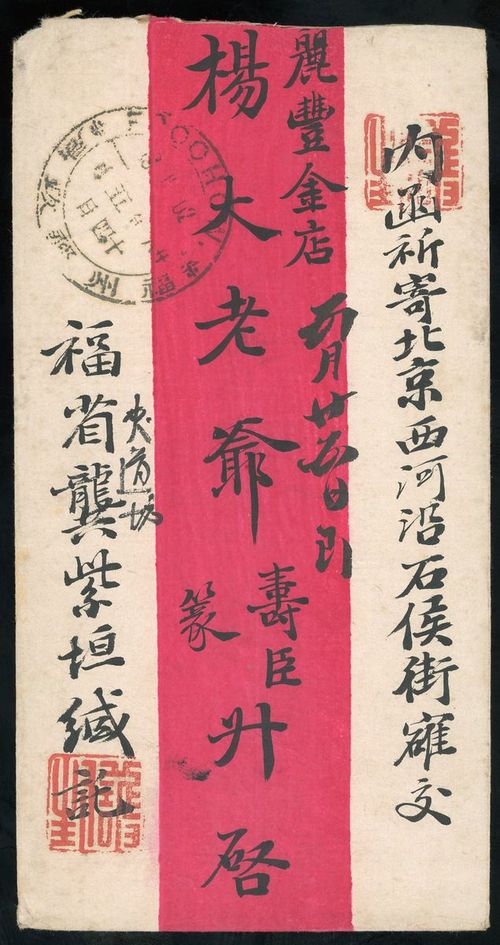 內函祈寄北京西河沿石侯街確交
麗豐金店
五月廿五日
楊大老爺壽臣篆升啓
福省龔紫垣緘託
FOOCHOW
福州